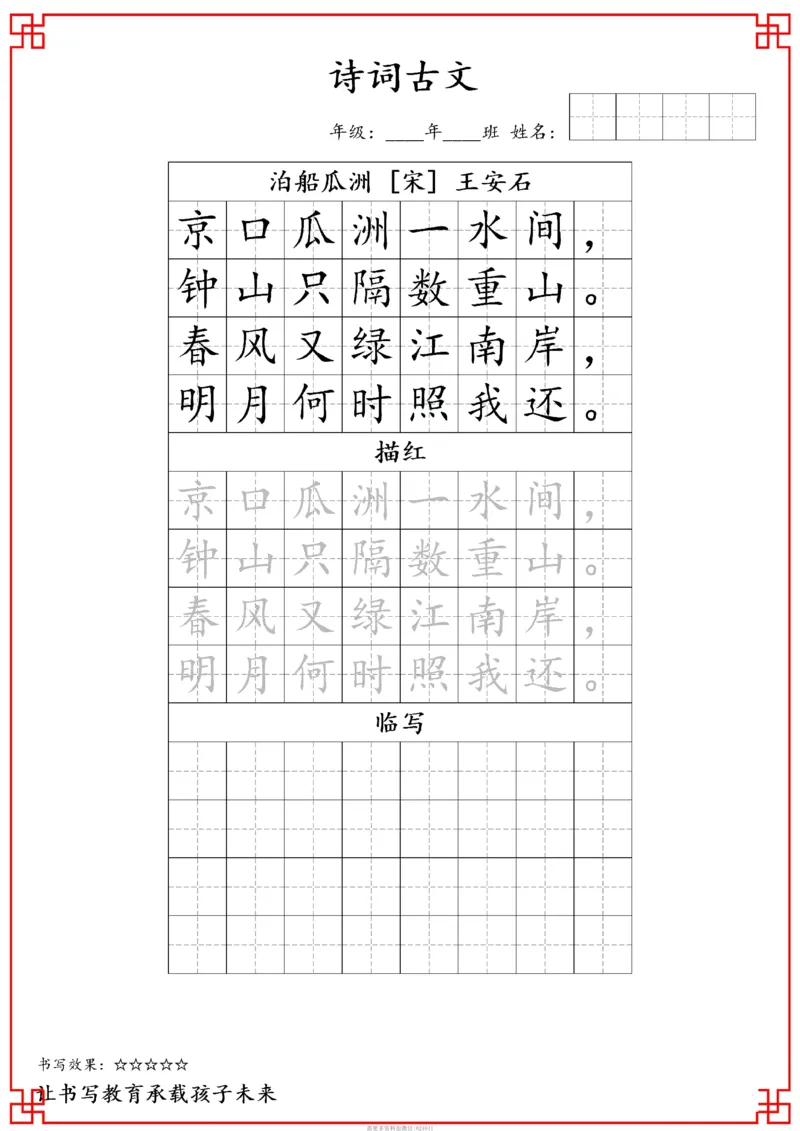 诗词古文
年级：____年____班 姓名：
泊船瓜洲 [宋] 王安石
京口瓜洲一水间，
钟山只隔数重山。
春风又绿江南岸，
明月何时照我还。
描红
京口瓜洲一水间，
钟山只隔数重山。
春风又绿江南岸，
明月何时照我还。
临写
书写效果：☆☆☆☆☆
让书写教育承载孩子未来